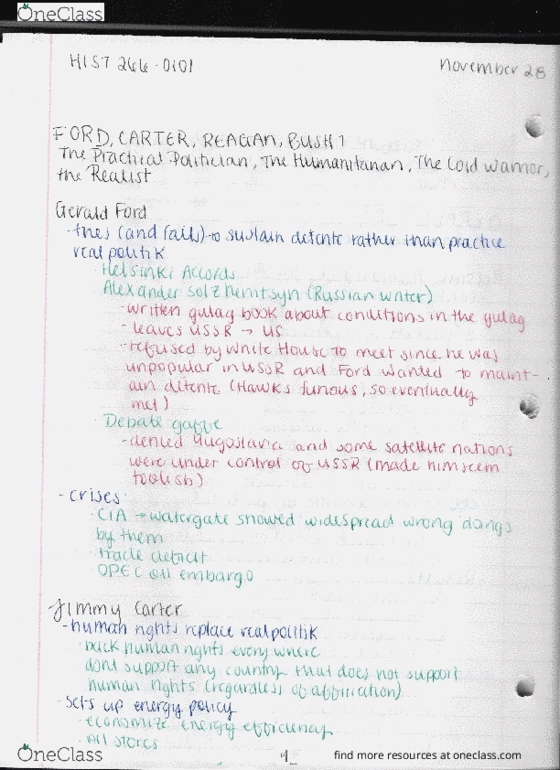 OneClass
HIST 266-0101
november 28
FORD, CARTER, REAGAN, BUSH 1
The Practical Politician, The Humanitarian, The Cold Warrior,
the Realist
Gerald Ford
-tries (and fails) to sustain detente rather than practice
realpolitik
-Helsinki Accords
-Alexander Solzhenitsyn (Russian writer)
-written gulag book about conditions in the gulag
-leaves USSR → US
-refused by White House to meet since he was
unpopular in USSR and Ford wanted to maint-
ain detente (Hawks furious, so eventually
met)
-Debate gaffe
-denied Yugoslavia and some satellite nations
were under control of USSR (made him seem
foolish)
-crises
-CIA → watergate showed widespread wrong doings
by them
-trade deficit
-OPEC oil embargo
Jimmy Carter
-human rights replace realpolitik
-back human rights everywhere
-dont support any country that does not support
human rights (regardless of affiliation)
-sets up energy policy
-economize energy efficiency
-oil stores
OneClass
1
find more resources at oneclass.com